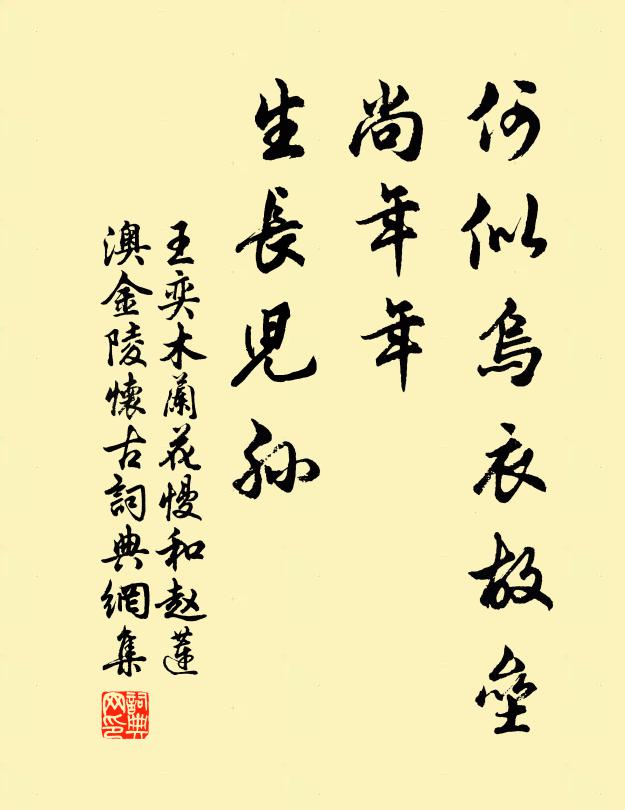 何似烏衣故壘
尚年年
生長児孙
王奕木蘭花慢和赵蓮
澳金陵懷古詞典網集
詞典
网印